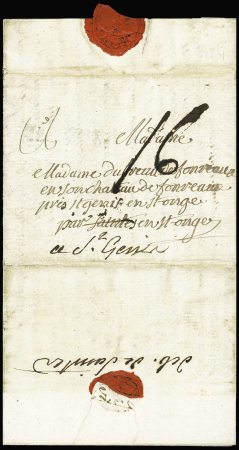 16
Madame
Madame dupreau de fonreaux
en son chateau de fonreaux
pres st genis en st onge
par Saintes en st onge
a St Genis
deb. de